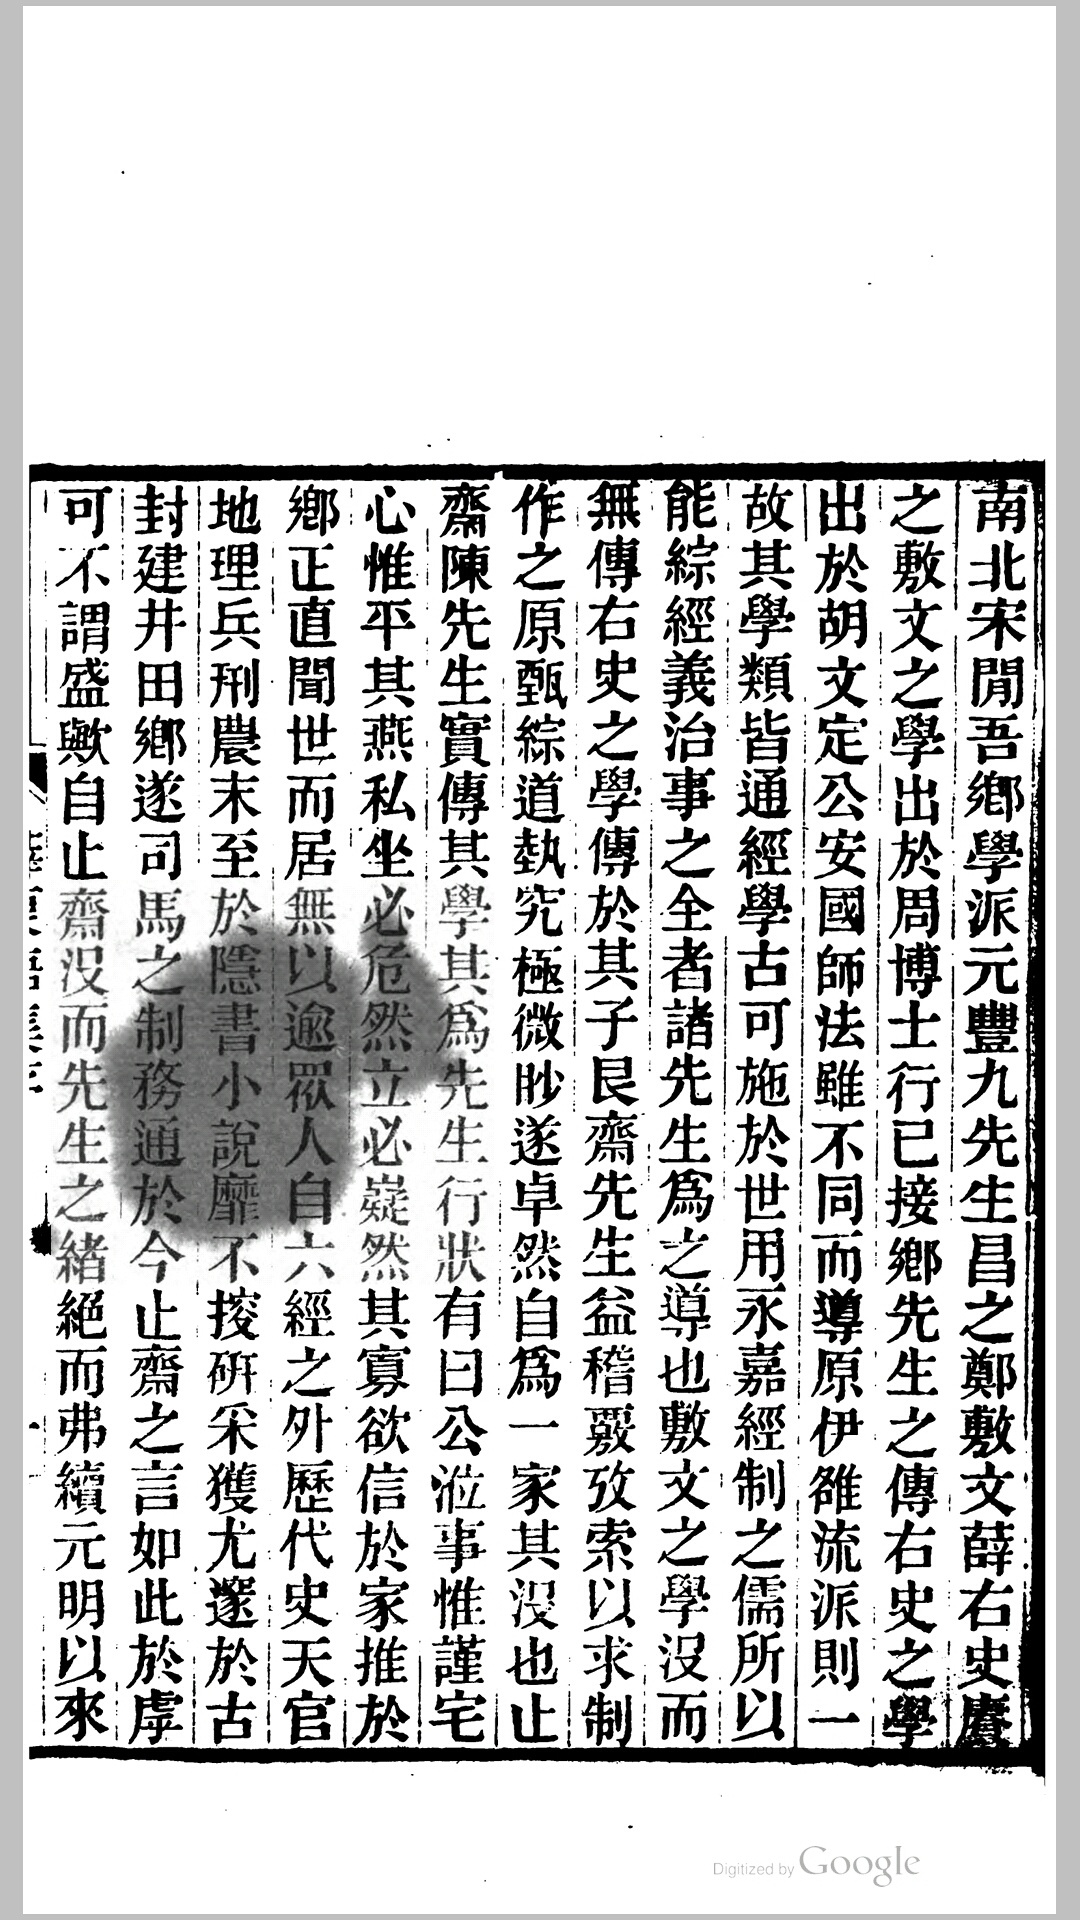 南北宋閒吾鄉學派元豐九先生昌之鄭敷文薛右史賡
之敷文之學出於周博士行已接鄉先生之傳右史之學
出於胡文定公安國師法雖不同而導原伊雒流派則一
故其學類皆通經學古可施於世用永嘉經制之儒所以
能綜經義治事之全者諸先生爲之導也敷文之學沒而
無傳右史之學傳於其子艮齋先生益稽覈攷索以求制
作之原甄綜道埶究極微眇遂卓然自爲一家其沒也止
齋陳先生實傳其學其爲先生行狀有曰公涖事惟謹宅
心惟平其燕私坐必危然立必嶷然其寡欲信於家推於
鄉正直聞世而居無以逾眾人自六經之外歷代史天官
地理兵刑農末至於隱書小說靡不捘硏采獲尤邃於古
封建井田鄉遂司馬之制務通於今止齋之言如此於虖
可不謂盛歟自止齋沒而先生之緒絕而弗續元明以來
Digitized by Google